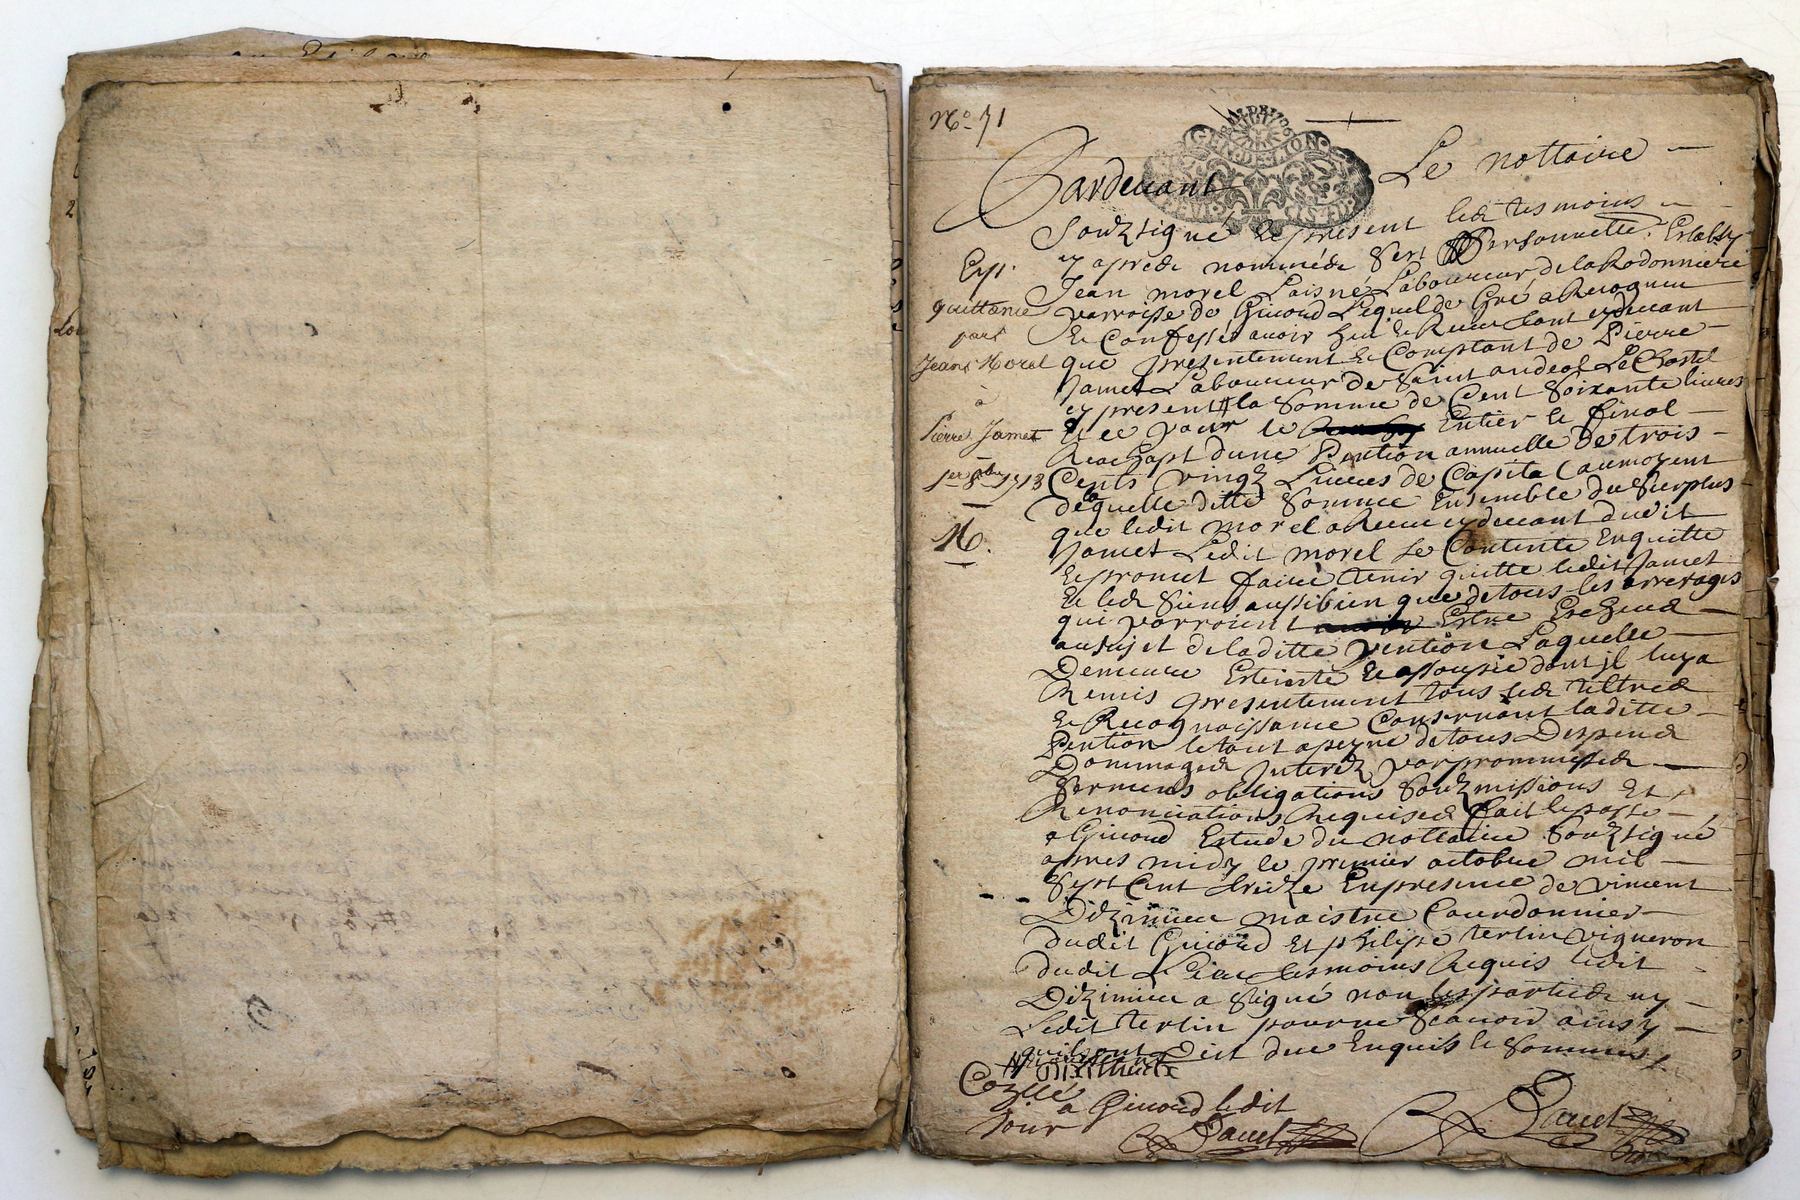 No. 71
GEN. DE LION
Pardevant Le nottaire
Souzsigné Et present led tesmoins
cy apred nommed Sest Personnelle. Establi
Jean morel Laisné Laboureur de la Rodonniere
parroisse de Givord Lequel de Gré a Recogneu
Et Confessé avoir heu et Receu tant cy devant
que presentement et Comptant de Pierre
Jamet Laboureur de Saint andeol Le Chastel
cy present la Somme de Cent Soixante livres
Et ce pour le Entier et final
Reachapt dune Pention annuelle De trois
Cents vingt Livres de Capital au moyent
de laquelle ditte Somme Ensemble du Surplus
que ledit morel a Receu cy devant dudit
Jamet Ledit morel Se Contente Enquitte
Et promet faire tenir quitte ledit Jamet
Et led Siens aussi bien que de tous les arrerages
qui porroient Estre Escheud
au sujet de laditte pention Laquelle
Demeure Esteinte Et assoupie dont jl luy a
Remis presentement tous led tiltred
Et Recognoissance Consernant laditte
Pention le tout a peyne de tous Despend
Dommaged Interez par prommessed
Serments obligations Souzmissions Et
Renonciations Requised fait et passé
a Givord Estude du nottaire Souzsigné
apres midy le premier octobre mil
Sept Cent treize En presence de vincent
Dizimieu maistre Courdonnier
dudit Givord Et philipe terlin vigneron
dudit Lieu tesmoins Requis ledit
Dizimieu a Signé non les partied ny
Ledit terlin pour ne Scavoir ainsy
quil ont dit due Enquis et Sommés
Exp.
quittance
par
Jean Morel
à
Pierre Jamet
1er 8bre 1713
Dizimieu
Conllé
à Givord ledit
Jour